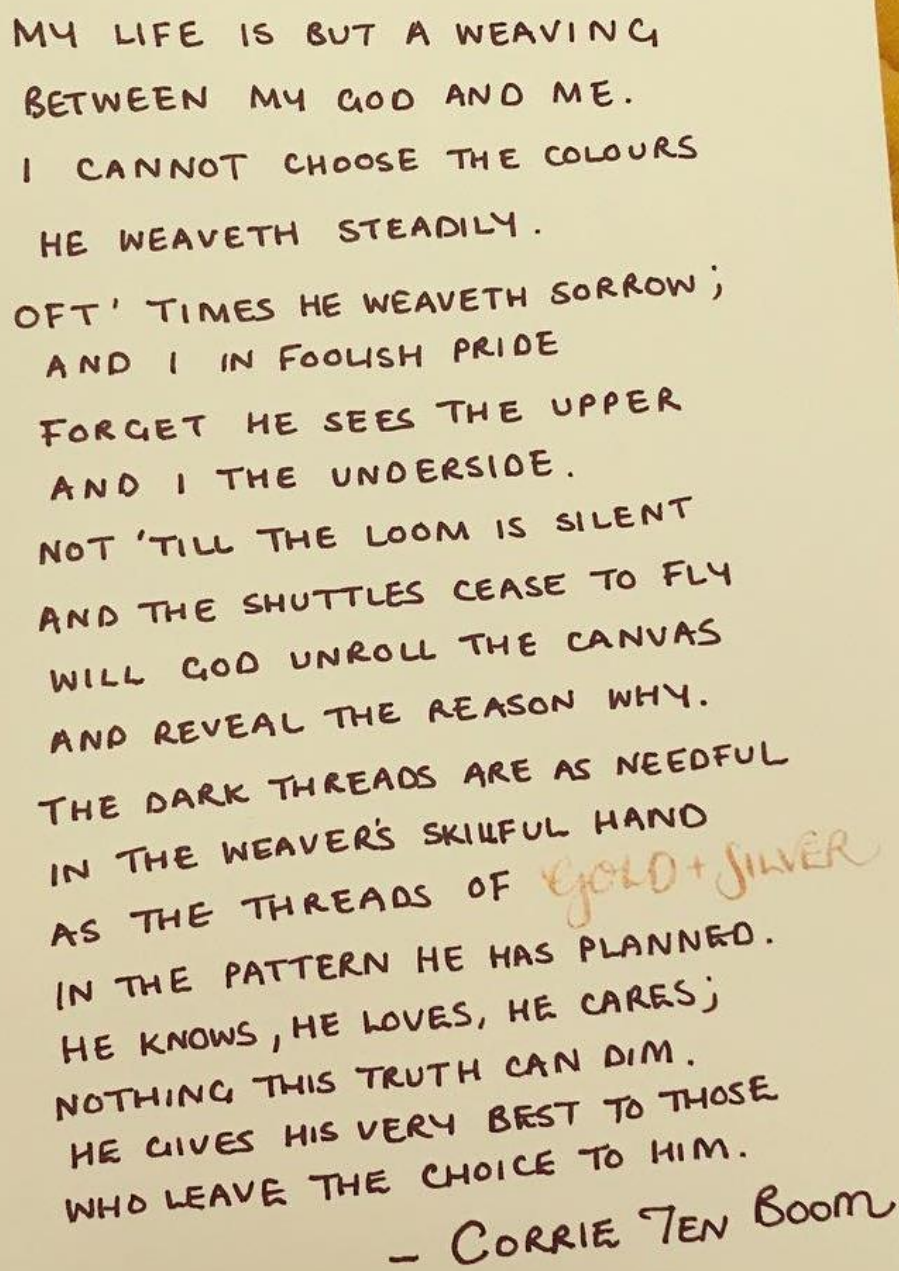 MY LIFE IS BUT A WEAVING
BETWEEN MY GOD AND ME.
I CANNOT CHOOSE THE COLOURS
HE WEAVETH STEADILY.
OFT' TIMES HE WEAVETH SORROW;
AND I IN FOOLISH PRIDE
FORGET HE SEES THE UPPER
AND I THE UNDERSIDE.
NOT 'TILL THE LOOM IS SILENT
AND THE SHUTTLES CEASE TO FLY
WILL GOD UNROLL THE CANVAS
AND REVEAL THE REASON WHY.
THE DARK THREADS ARE AS NEEDFUL
IN THE WEAVER'S SKILLFUL HAND
AS THE THREADS OF GOLD + SILVER
IN THE PATTERN HE HAS PLANNED.
HE KNOWS, HE LOVES, HE CARES;
NOTHING THIS TRUTH CAN DIM.
HE GIVES HIS VERY BEST TO THOSE
WHO LEAVE THE CHOICE TO HIM.
- CORRIE TEN BOOM